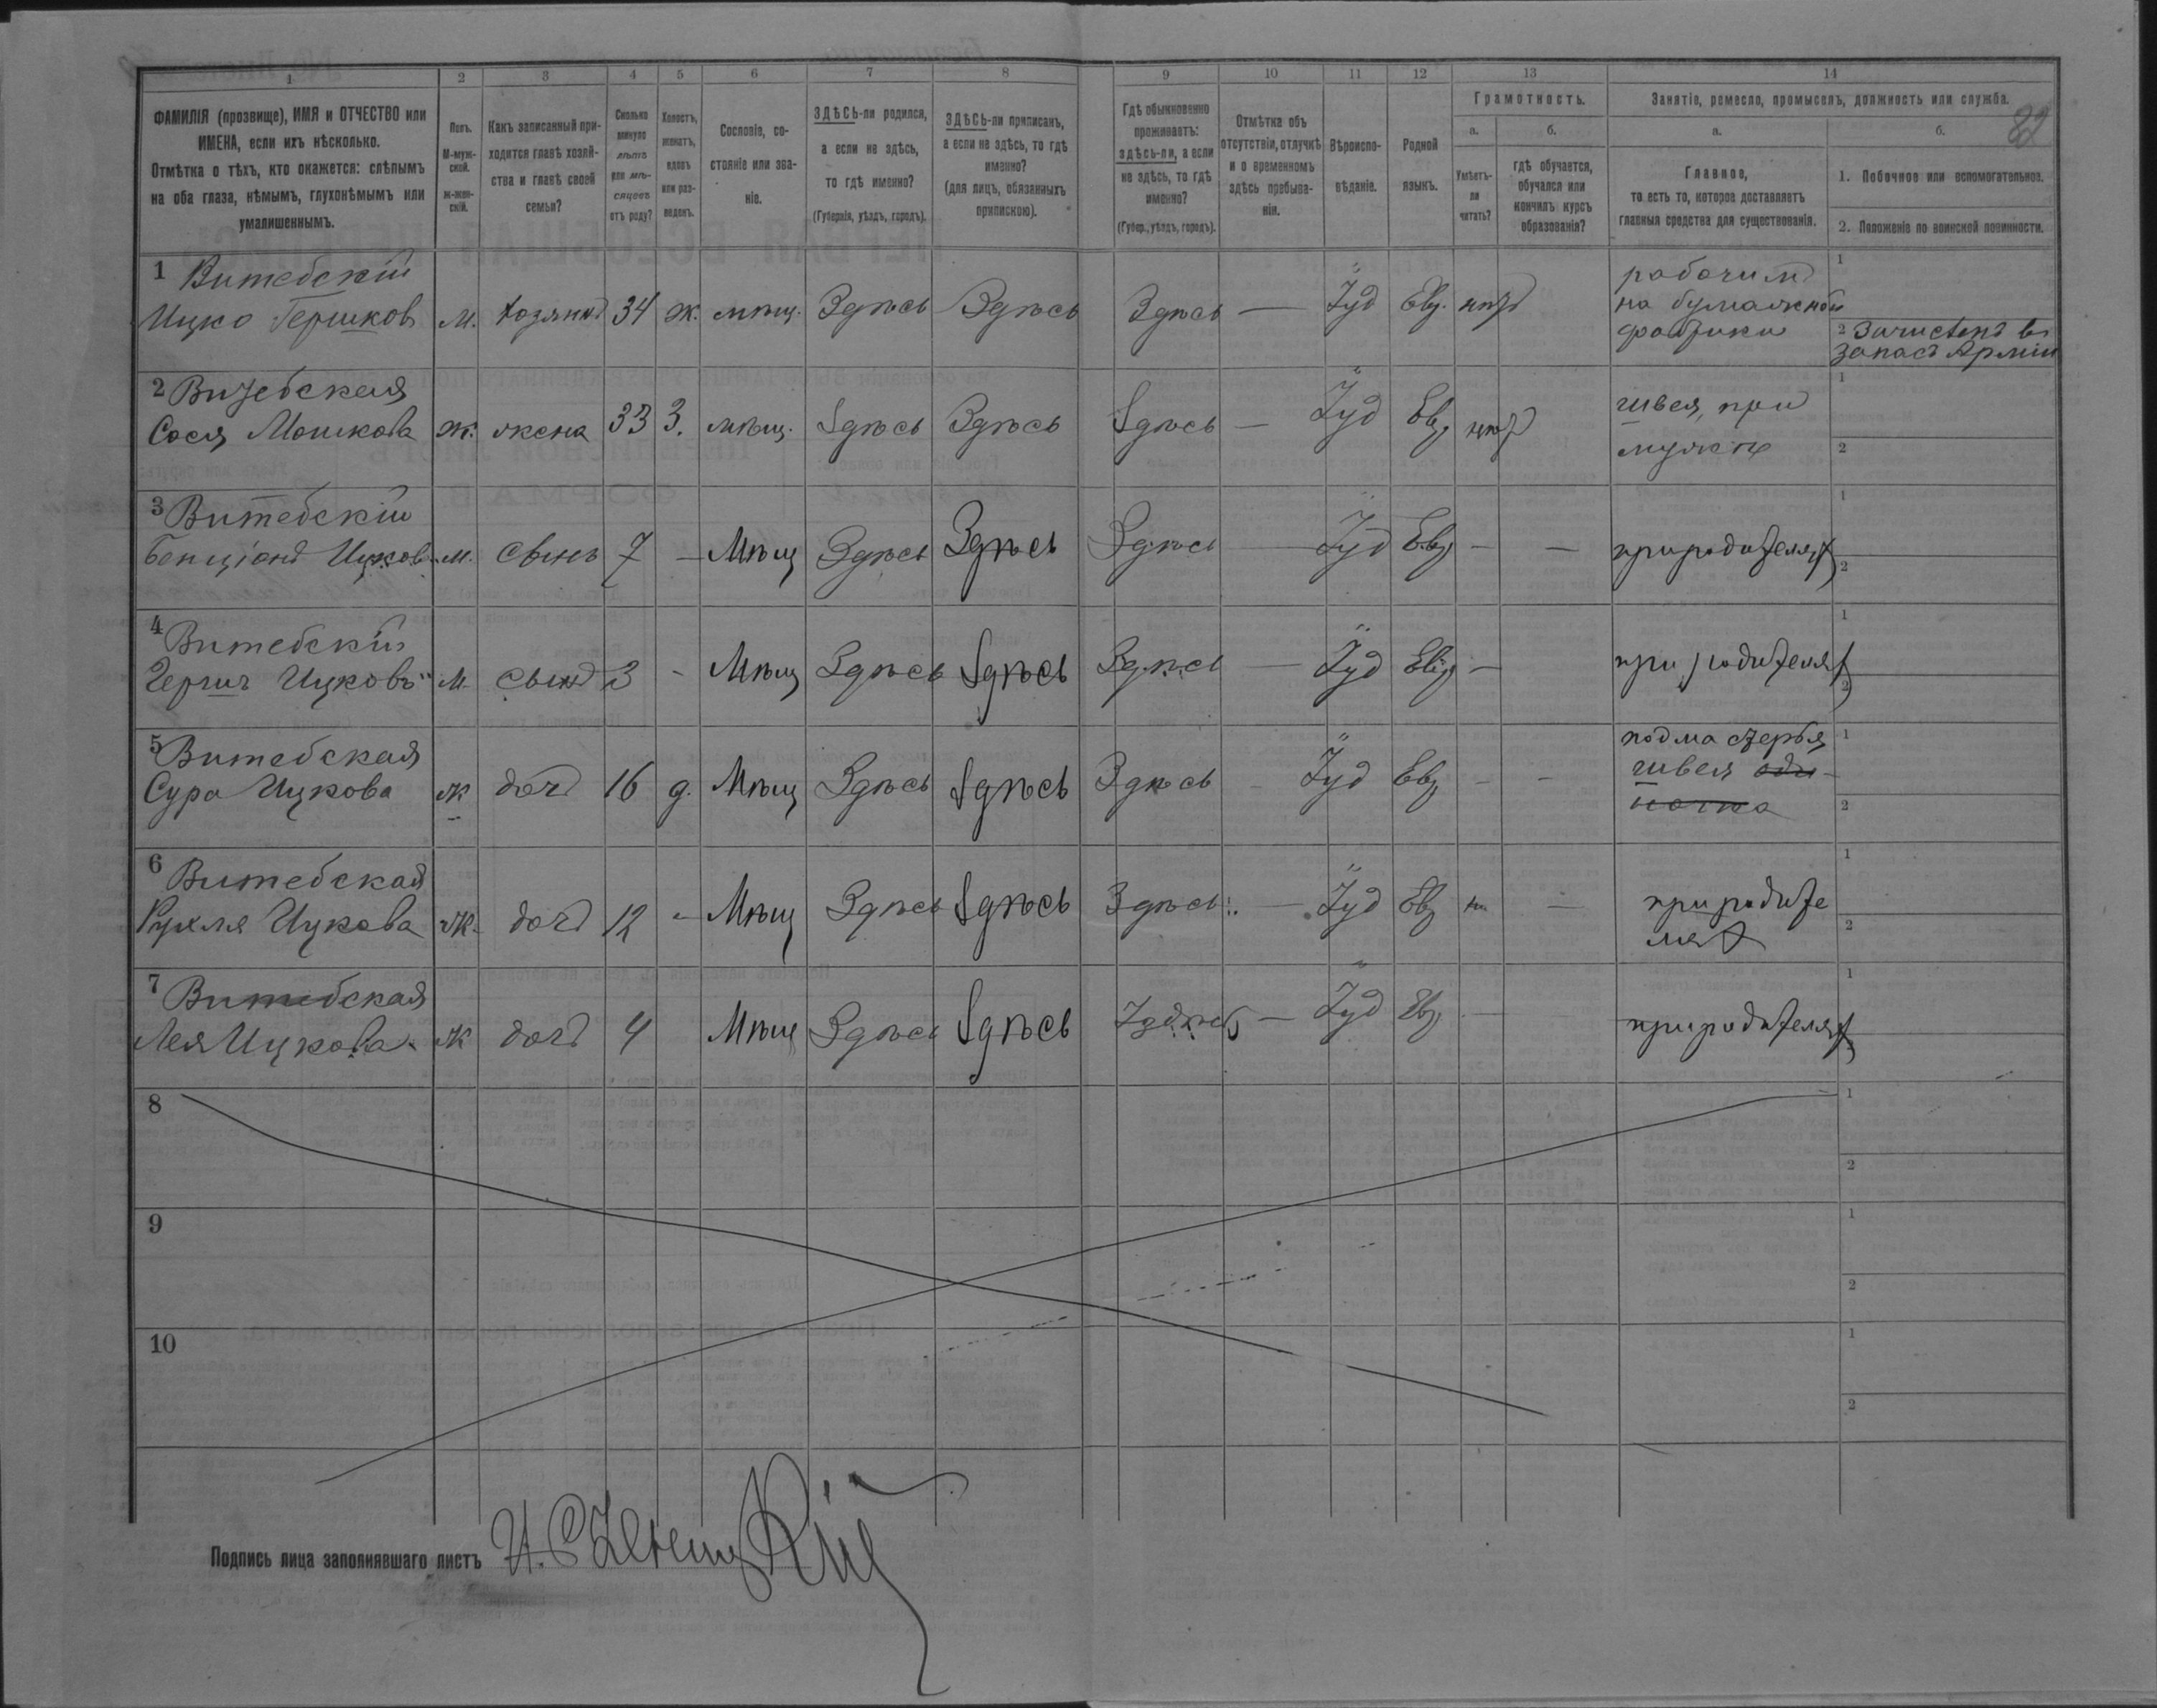 22
1 2 3 4 5 6 7 8 9 10 11 12 13 14
ФАМИЛІЯ (прозвище), ИМЯ и ОТЧЕСТВО или
ИМЕНА, если ихъ нѣсколько.
Отмѣтка о тѣхъ, кто окажется: слѣпымъ
на оба глаза, нѣмымъ, глухонѣмымъ или
умалишеннымъ.
Полъ.
М-муж-
ской.
ж-жен-
скій.
Какъ записанный при-
ходится главѣ хозяй-
ства и главѣ своей
семьи?
Сколько
минуло
лѣтъ
или мѣ-
сяцевъ
отъ роду?
Холостъ,
женатъ,
вдовъ
или раз-
веденъ.
Сословіе, со-
стояніе или зва-
ніе.
ЗДѢСЬ-ли родился,
а если не здѣсь,
то гдѣ именно?
(Губернія, уѣздъ, городъ).
ЗДѢСЬ-ли приписанъ,
а если не здѣсь, то гдѣ
именно?
(для лицъ, обязанныхъ
припискою).
Гдѣ обыкновенно
проживаетъ:
здѣсь-ли, а если
не здѣсь, то гдѣ
именно?
(Губер., уѣздъ, городъ).
Отмѣтка объ
отсутствіи, отлучкѣ
и о временномъ
здѣсь пребыва-
ніи.
Вѣроиспо-
вѣданіе.
Родной
языкъ.
Грамотность.
а.
Умѣетъ-
ли
читать?
б.
гдѣ обучается,
обучался или
кончилъ курсъ
образованія?
Занятіе, ремесло, промыселъ, должность или служба.
а.
Главное,
то есть то, которое доставляетъ
главныя средства для существованія.
б.
1. Побочное или вспомогательное.
2. Положеніе по воинской повинности.
1 Витебскій
Ицко Гершков м. хозяинъ 34 ж. мѣщ. Здѣсь Здѣсь Здѣсь — Іуд Евр. нѣтъ
рабочимъ
на бумажной
фабрики
1
2 Зачисленъ въ
запасъ Арміи
2 Витебская
Сося Мошкова ж. жена 33 З. мѣщ. Здѣсь Здѣсь Здѣсь — Іуд Евр нѣтъ
швея, при
мужѣ
1
2
3 Витебскій
Бенціонъ Ицков м. сынъ 7 — Мѣщ Здѣсь Здѣсь Здѣсь — Іуд Евр — — при родителях
1
2
4 Витебскій
Гершъ Ицковъ м. сынъ 3 - Мѣщ Здѣсь Здѣсь Здѣсь — Іуд Евр — при родителях
1
2
5 Витебская
Сура Ицкова ж доч 16 д. Мѣщ Здѣсь Здѣсь Здѣсь - Іуд Евр - -
подмастерья
швея оди-
ночка
1
2
6 Витебская
Рухля Ицкова ж. доч 12 - Мѣщ Здѣсь Здѣсь Здѣсь — Іуд Евр н. —
при родите
лях
1
2
7 Витебская
Лея Ицкова ж доч 4 Мѣщ Здѣсь Здѣсь Здѣсь — Іуд Евр — при родителях
1
8
1
2
9
1
2
10
1
2
Подпись лица заполнявшаго листъ